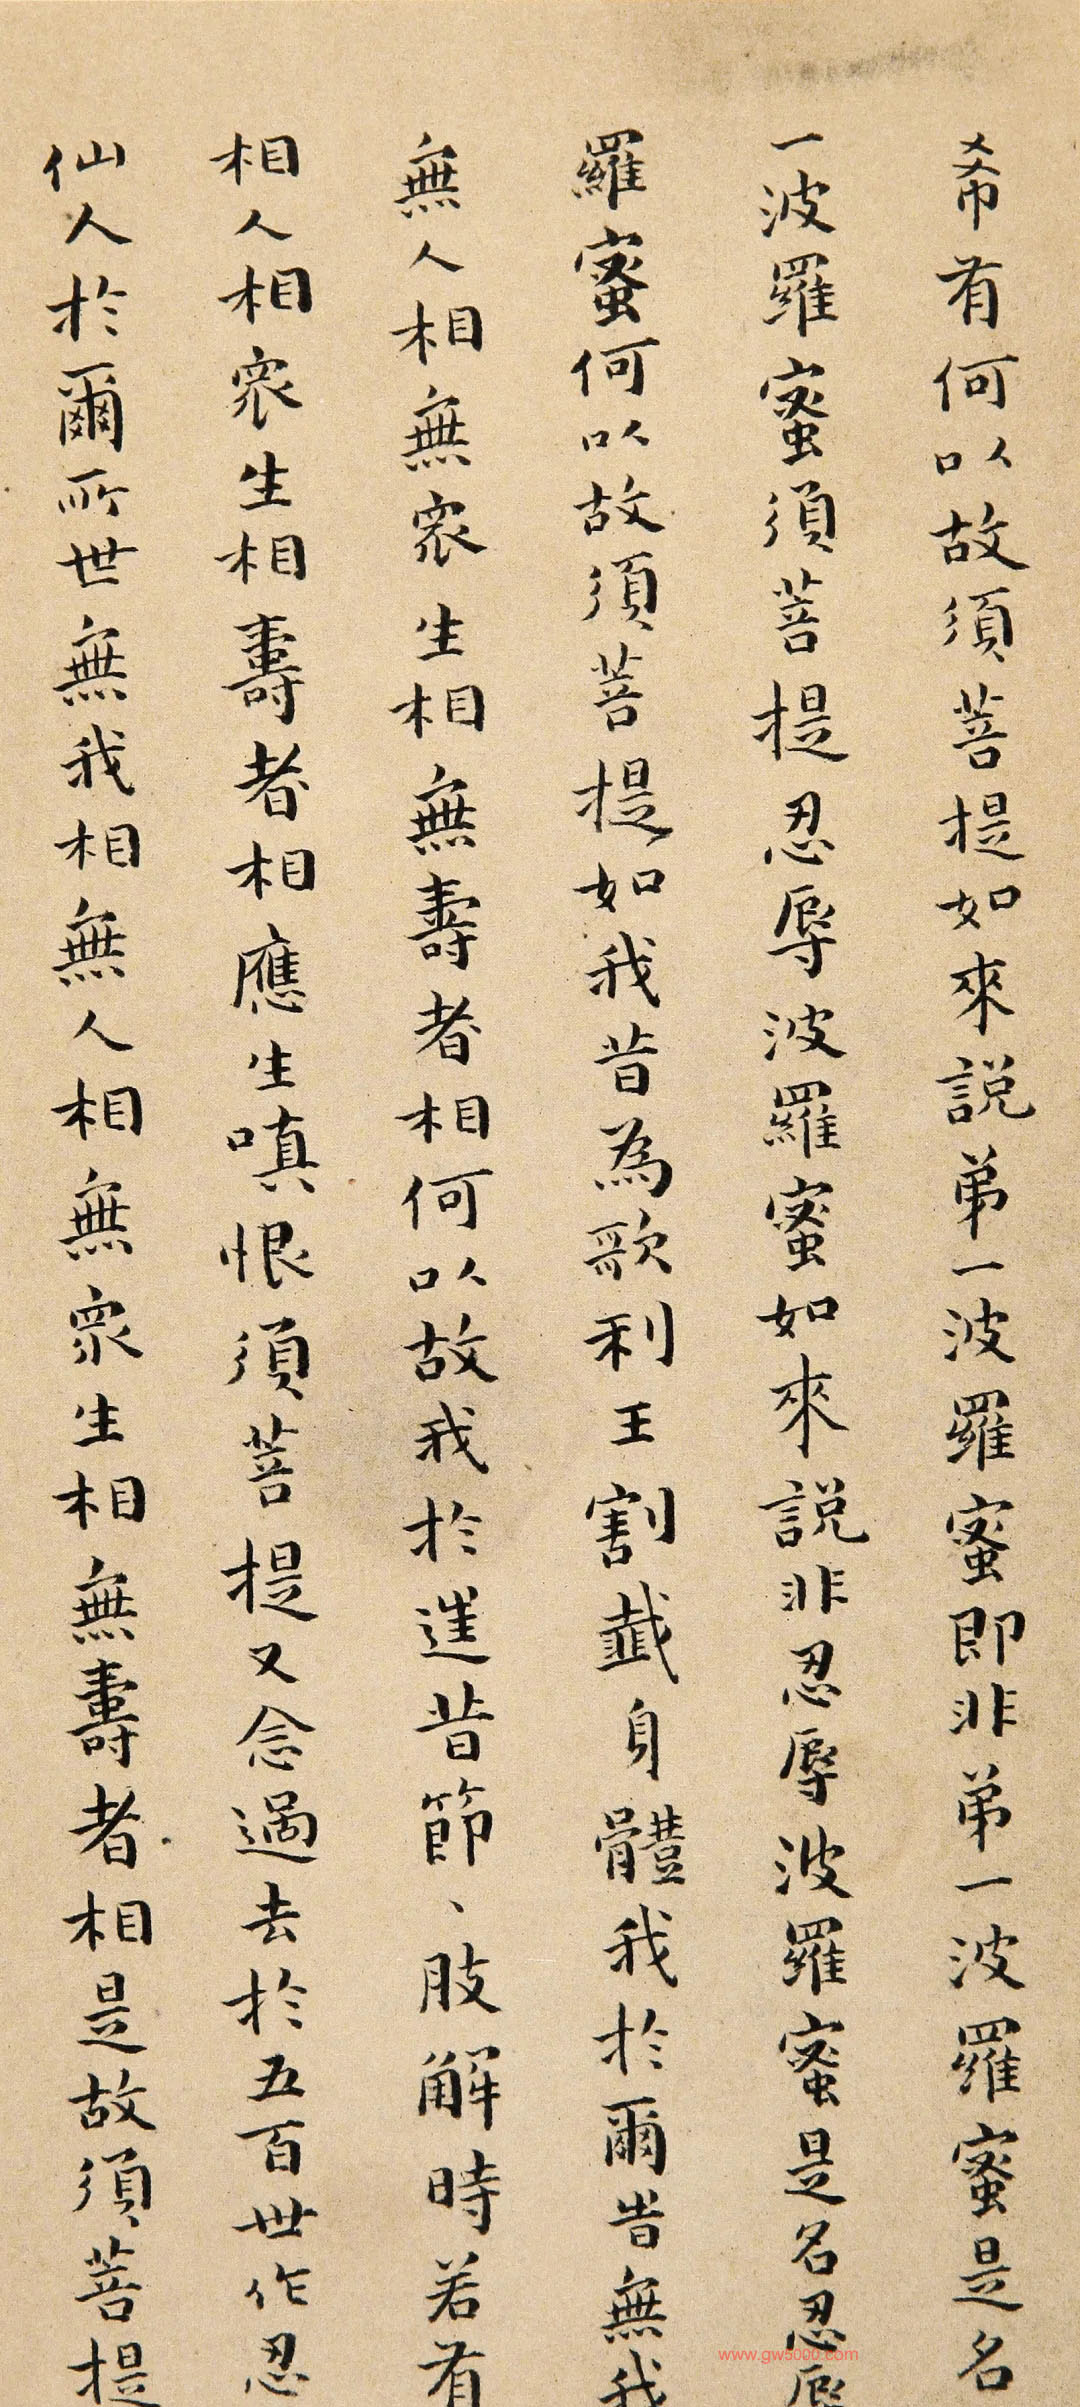 希有何以故須菩提如來説弟一波羅蜜即非弟一波羅蜜是名
一波羅蜜須菩提忍辱波羅蜜如來説非忍辱波羅蜜是名忍辱
羅蜜何以故須菩提如我昔為歌利王割截身體我於爾昔無我
無人相無衆生相無壽者相何以故我於進昔節、肢解時若有
相人相衆生相壽者相應生嗔恨須菩提又念過去於五百世作忍
仙人於爾所世無我相無人相無衆生相無壽者相是故須菩提
www.gw5000.com